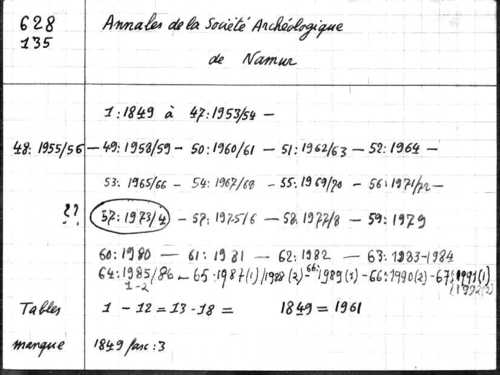 628 Annales de la Société Archéologique
135 de Namur
1:1849 à 47:1953/54 -
48:1955/56 - 49:1958/59 - 50:1960/61 - 51:1962/63 - 52:1964 -
53:1965/66 - 54:1967/68 - 55:1969/70 - 56:1971/72 -
?? 57:1973/4 - 57:1975/6 - 58:1977/8 - 59:1979
60:1980 - 61:1981 - 62:1982 - 63:1983-1984
64:1985/86 - 65-1987(1)/1988(2) 66:1989(1) - 66:1990(2) - 67:1991(1)
1-2 (1992(2)
Tables 1 - 12 = 13 - 18 = 1849 = 1961
manque 1849 fasc:3